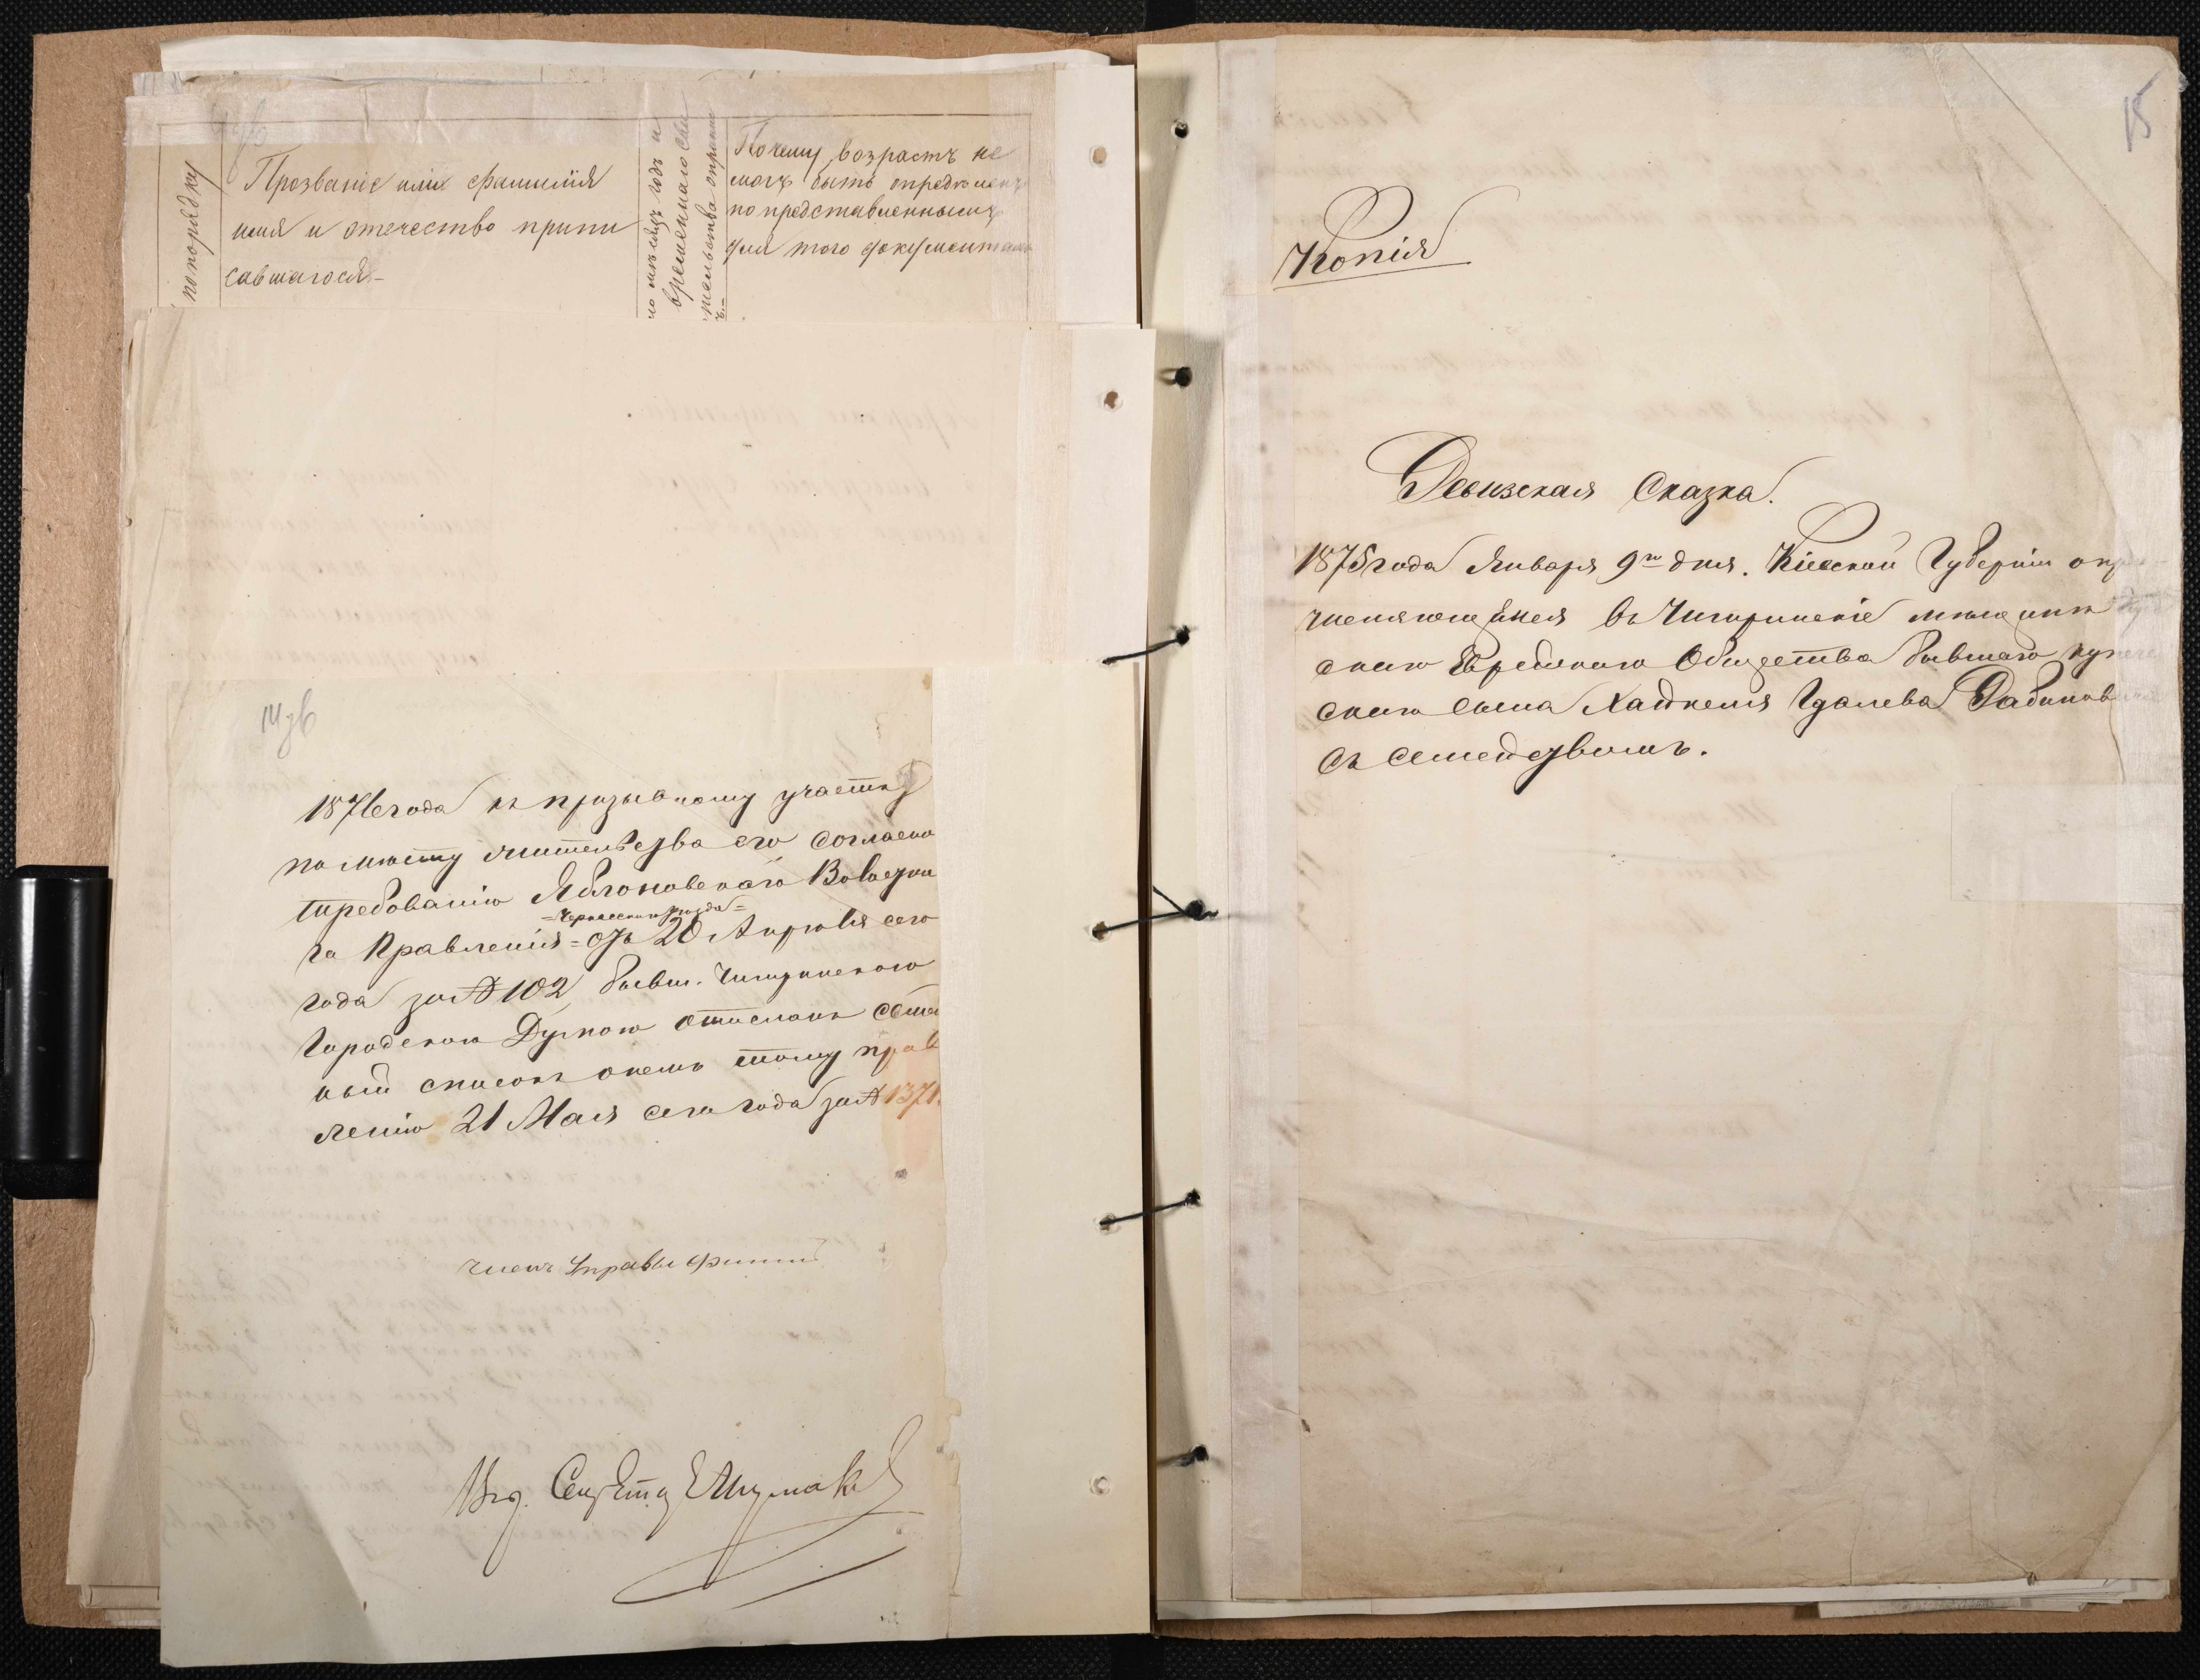 по порядку
Прозваніе или фамилія
имя и отечество припи
савшагося.-
мѣсяцъ годъ и
временнаго сви
тельства о припис
Почему возрастъ не
могъ быть опредѣленъ
по представленнымъ
для того документамъ
14 об
1876 года къ призывному участку
по мѣсту жительства его согласно
требованію Яблоновскаго Волостна
=Черкасскаго уѣзда=
го Правленія = отъ 20 Апрѣля сего
года за № 102, бывш. Чигиринскою
Городскою Думою отосланъ семей
ный списокъ онему тому прав
ленію 21 Мая сего года за № 1371.
Членъ Управы
Вид. Секрета
15
Копія
Ревизская Сказка.
1875 года Января 9го дня. Кіевской Губерніи о при
числяющемся въ Чигиринскіе мѣщан
скаго Еврейскаго Общества бывшаго купече
скаго сына Хацкеля Гдалева Рабинов
съ семействомъ.